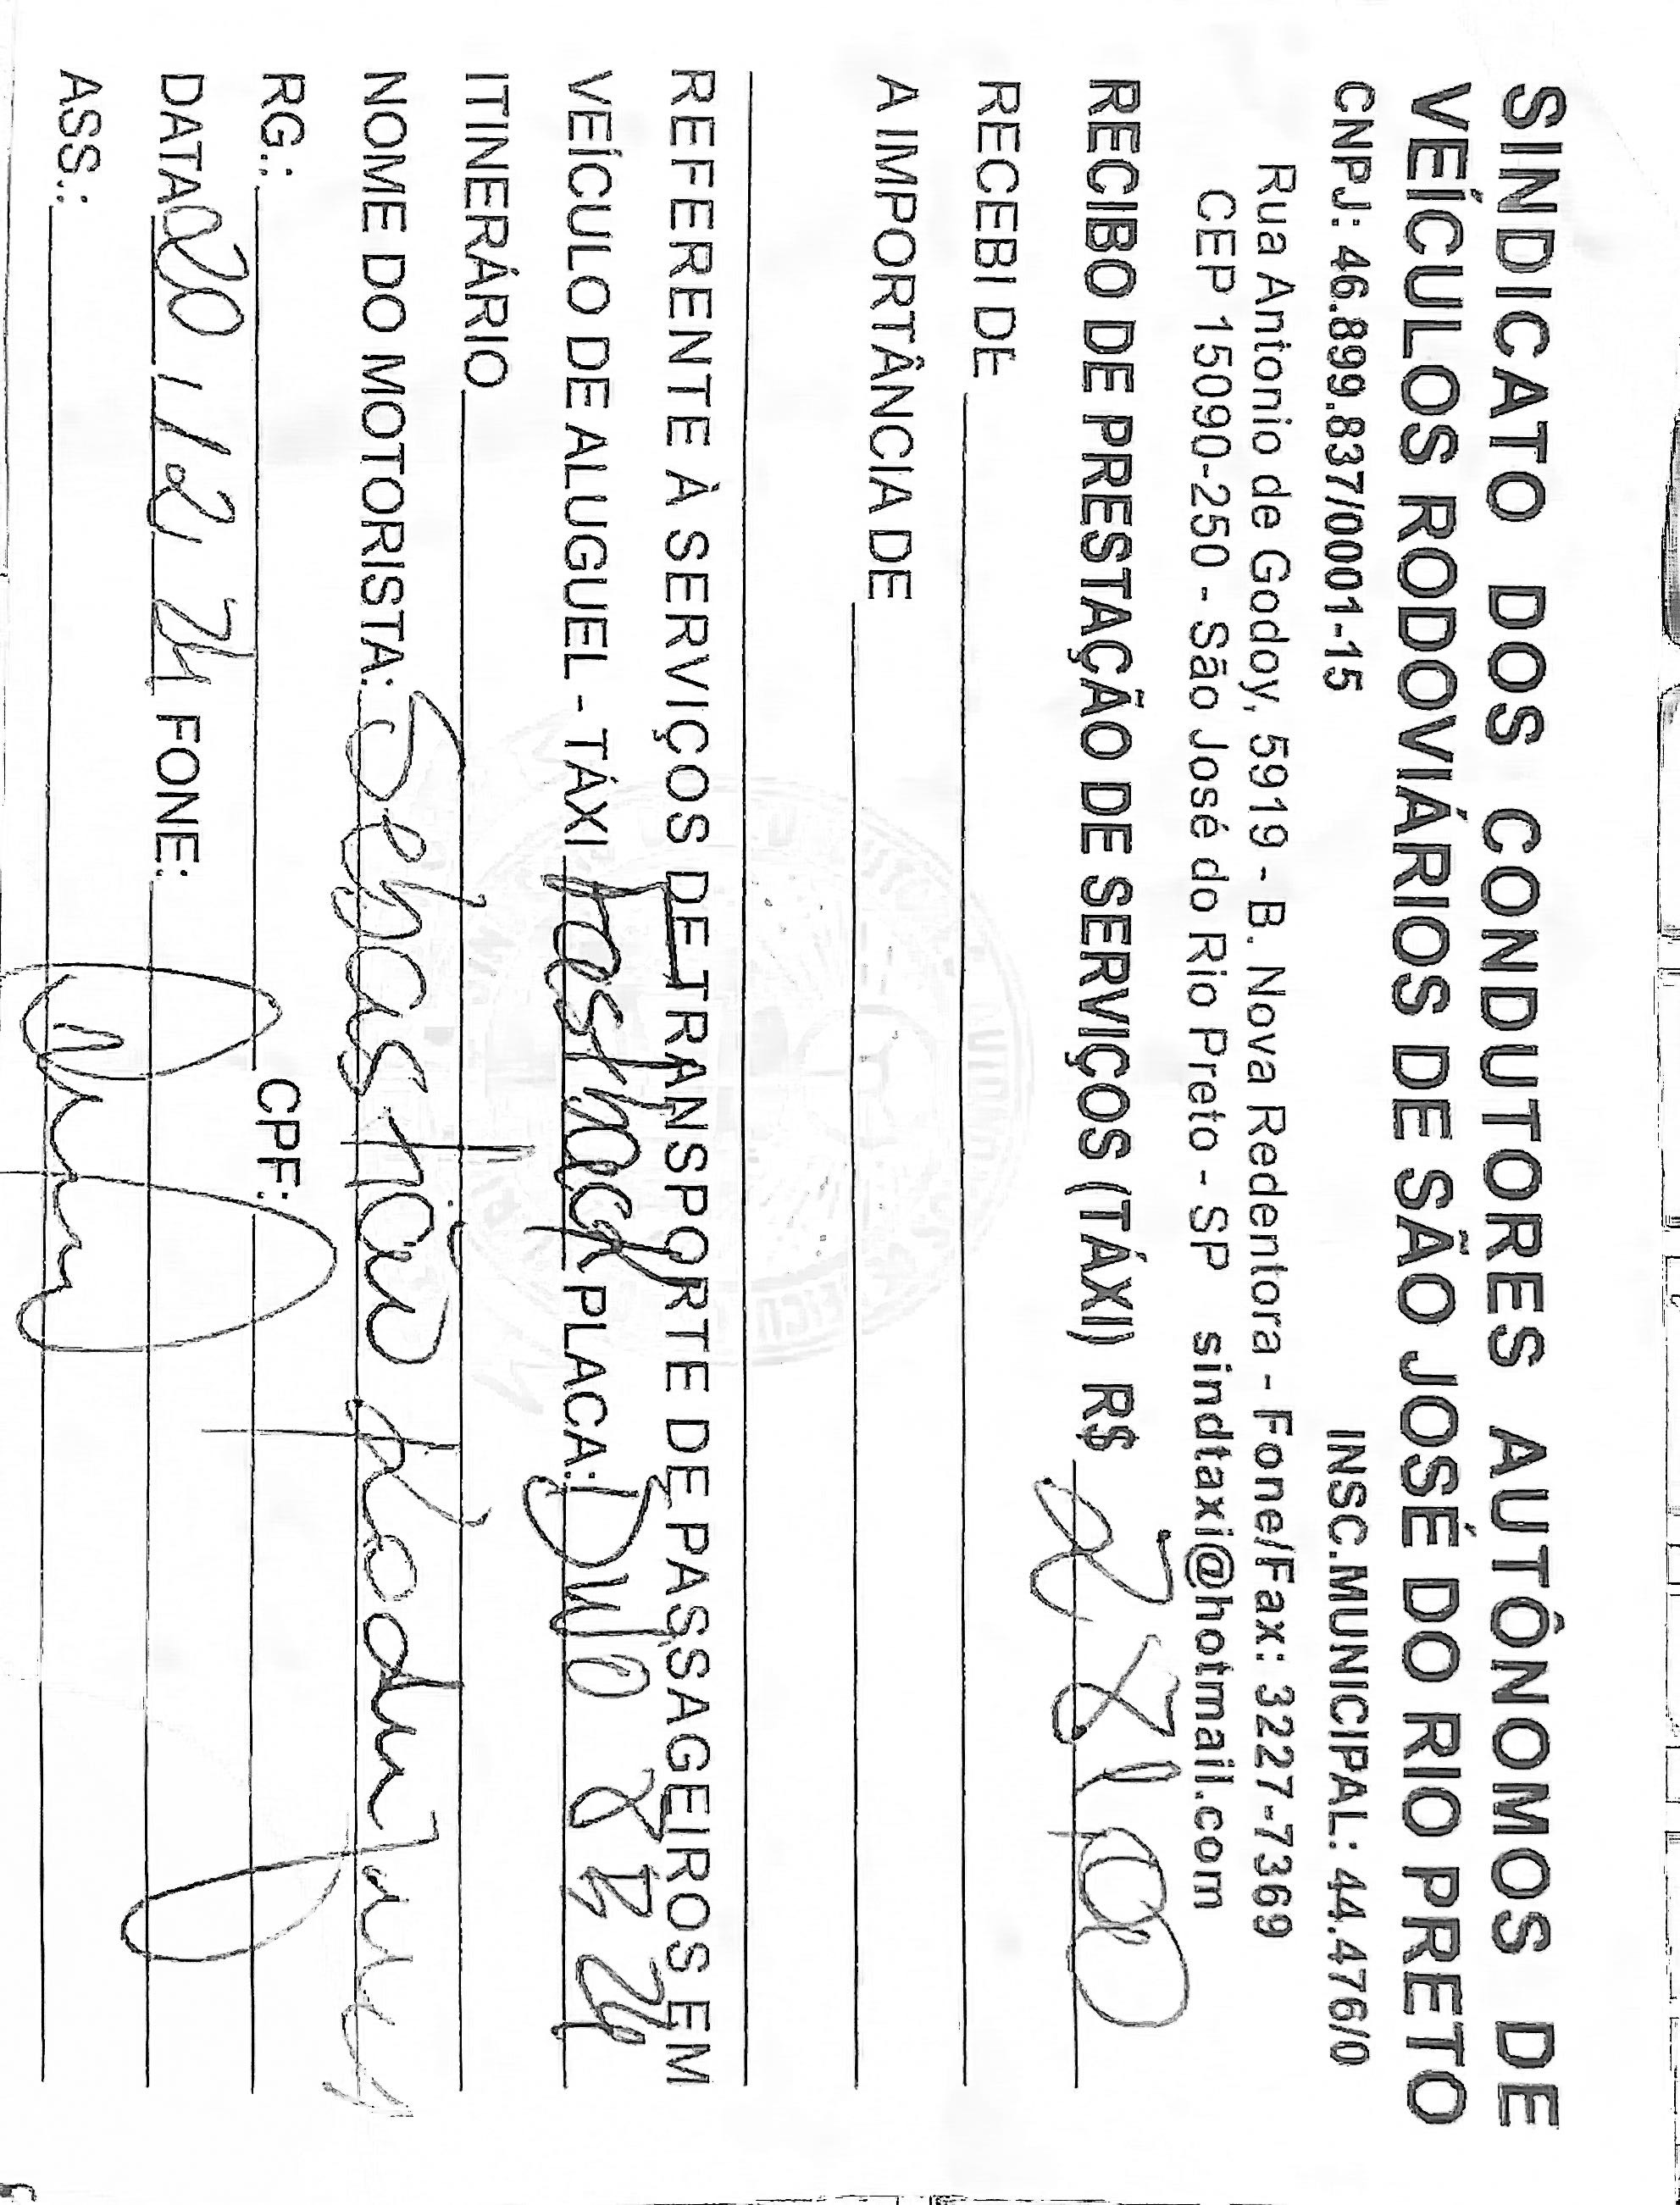 SINDICATO DOS CONDUTORES AUTÔNOMOS DE
VEÍCULOS RODOVIÁRIOS DE SÃO JOSÉ DO RIO PRETO
CNPJ: 46.899.837/0001-15 INSC.MUNICIPAL: 44.476/0
Rua Antonio de Godoy, 5919 - B. Nova Redentora - Fone/Fax: 3227-7369
CEP 15090-250 - São José do Rio Preto - SP sindtaxi@hotmail.com
RECIBO DE PRESTAÇÃO DE SERVIÇOS (TÁXI) R$
RECEBI DE
A IMPORTÂNCIA DE
REFERENTE À SERVIÇOS DE TRANSPORTE DE PASSAGEIROS EM
VEÍCULO DE ALUGUEL - TÁXI Fastback PLACA:
ITINERÁRIO
NOME DO MOTORISTA: Sebastião
RG.: CPF:
DATA 20/12/24 FONE:
ASS.: